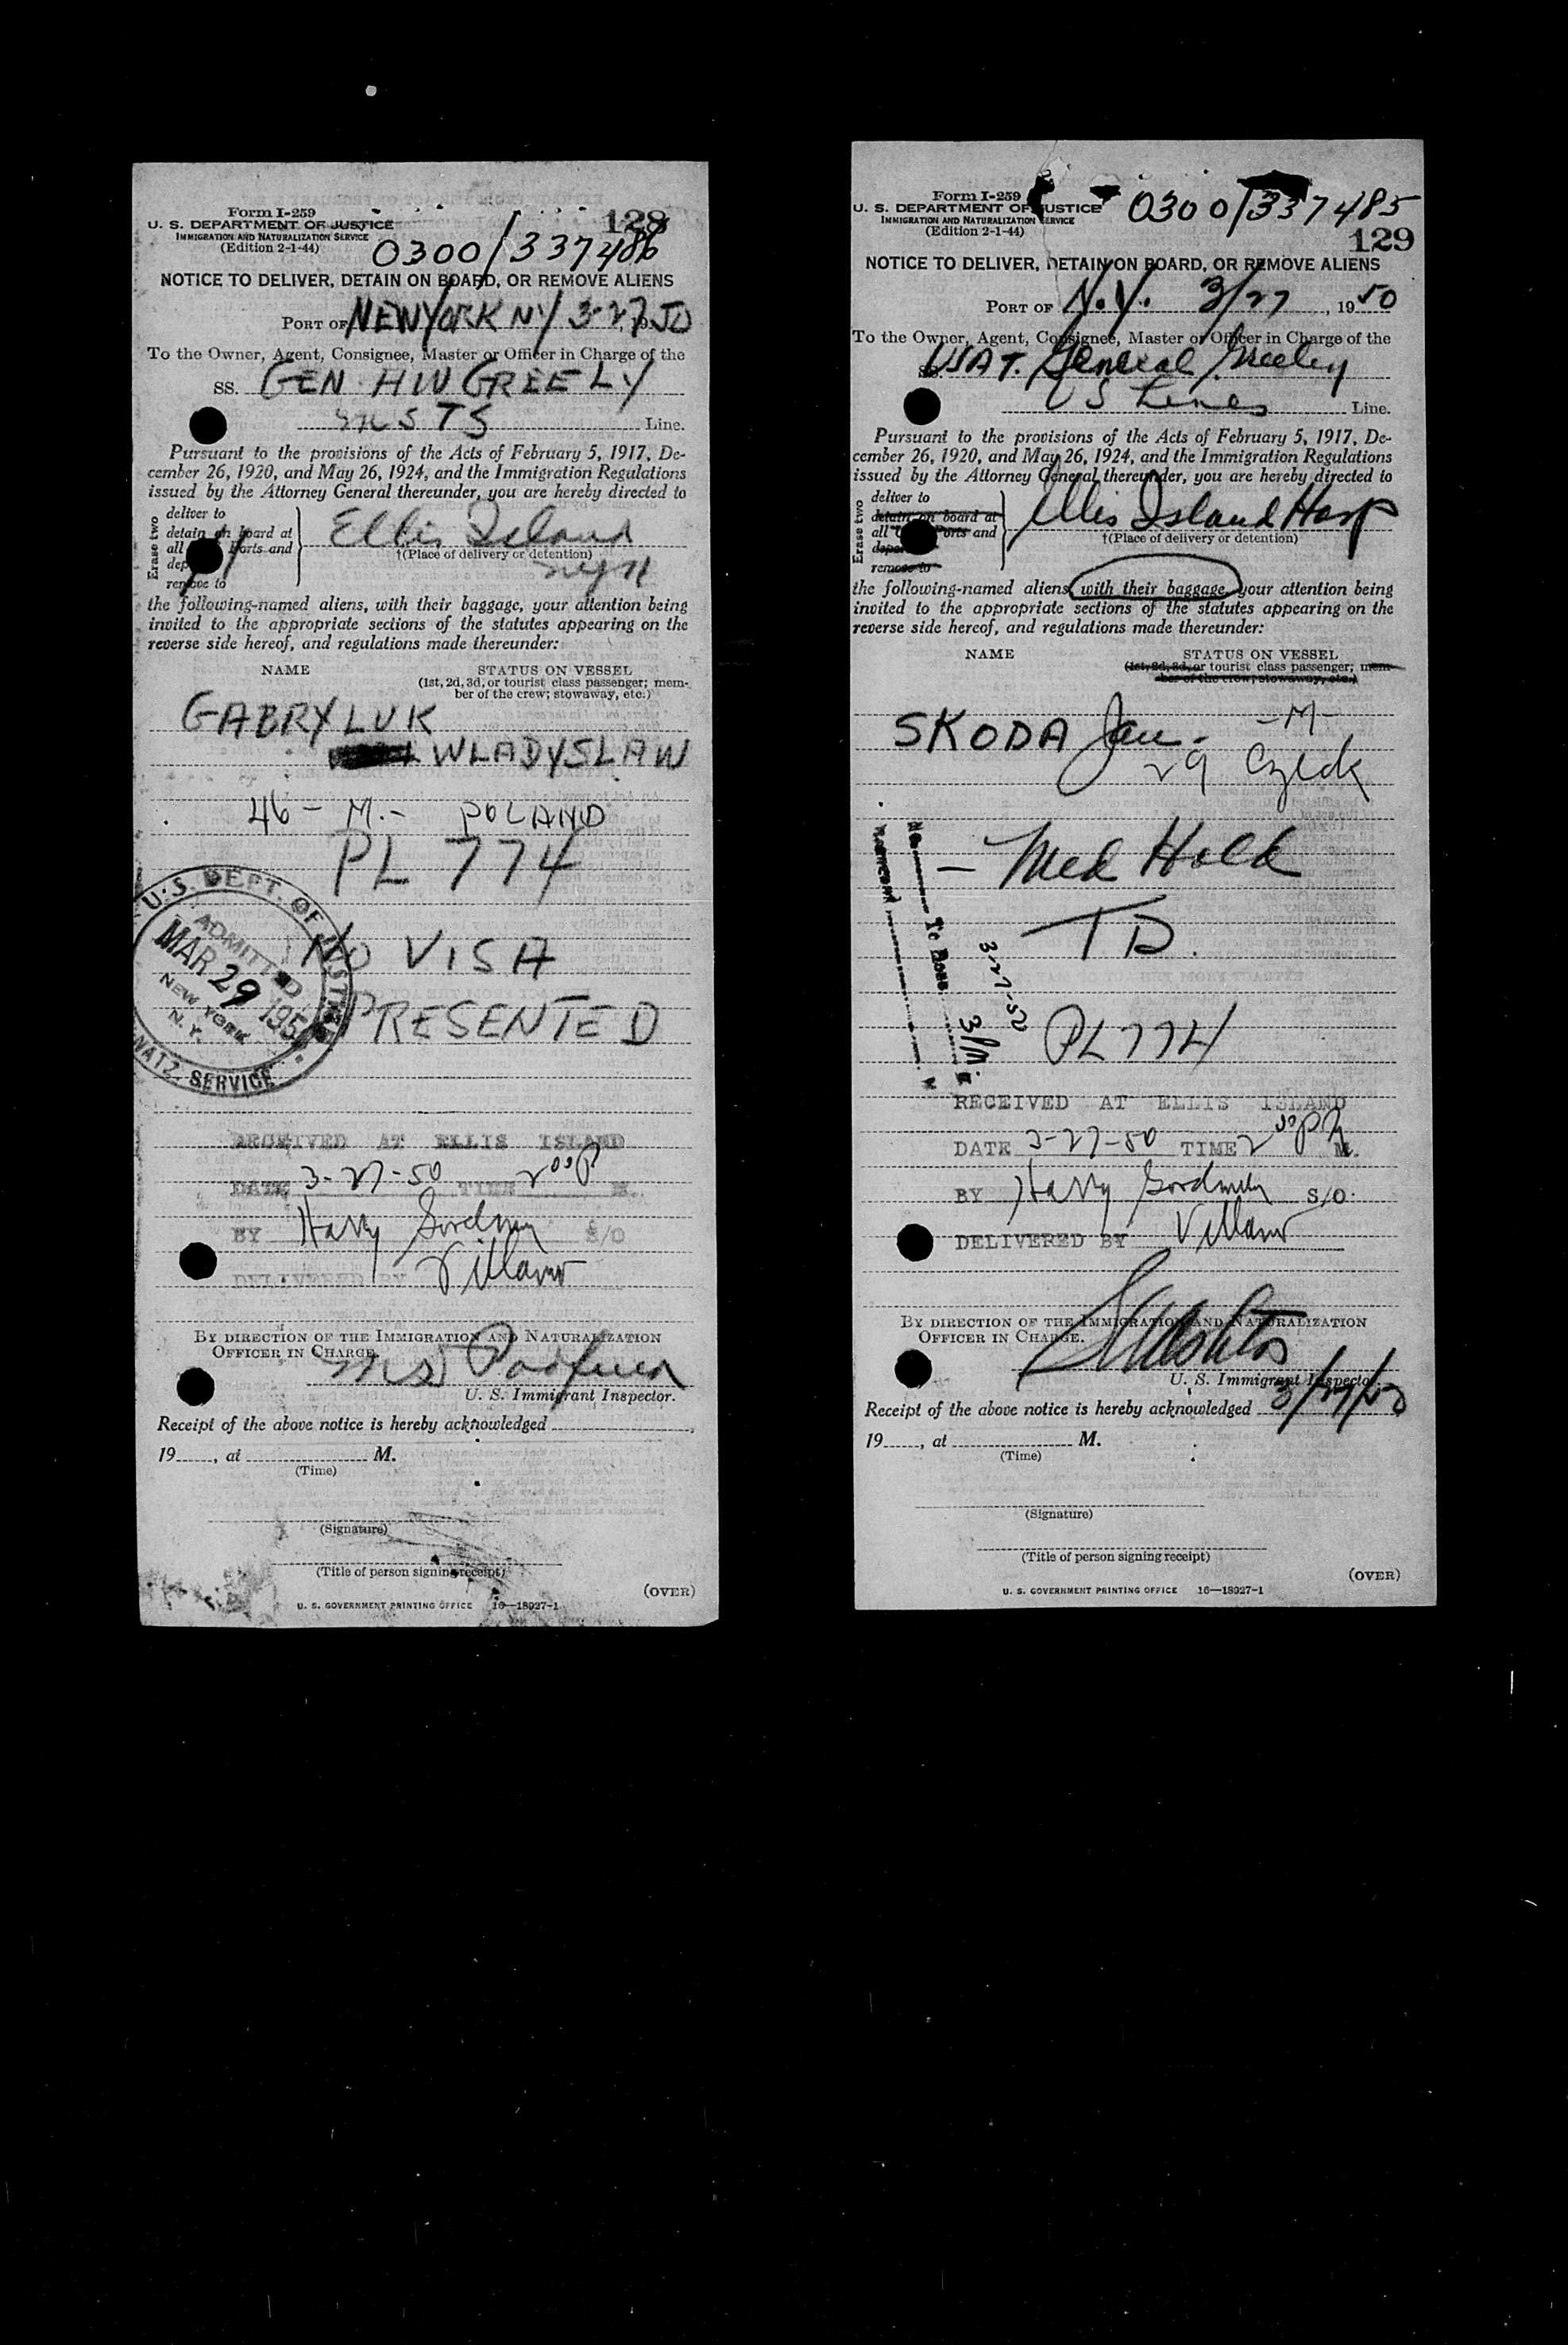 Form I-259
U. S. DEPARTMENT OF JUSTICE
IMMIGRATION AND NATURALIZATION SERVICE
(Edition 2-1-44)
128
0300/337486
NOTICE TO DELIVER, DETAIN ON BOARD, OR REMOVE ALIENS
PORT OF NEW YORK NY 3-27, 1950
To the Owner, Agent, Consignee, Master or Officer in Charge of the
SS. GEN HW GREELY
MSTS Line.
Pursuant to the provisions of the Acts of February 5, 1917, De-
cember 26, 1920, and May 26, 1924, and the Immigration Regulations
issued by the Attorney General thereunder, you are hereby directed to
Erase two
deliver to
detain on board at
all Ports and
remove to
Ellis Island
†(Place of delivery or detention)
the following-named aliens, with their baggage, your attention being
invited to the appropriate sections of the statutes appearing on the
reverse side hereof, and regulations made thereunder:
NAME STATUS ON VESSEL
(1st, 2d, 3d, or tourist class passenger; mem-
ber of the crew; stowaway, etc.)
GABRYLUK
WLADYSLAW
46 - M. - POLAND
PL 774
NO VISA
PRESENTED
U.S. DEPT. OF JUSTICE
ADMITTED
MAR 29 1950
NEW YORK
N.Y.
NATZ. SERVICE
RECEIVED AT ELLIS ISLAND
DATE 3-27-50 TIME 2 00 P M.
BY Harry S/O
DELIVERED BY
BY DIRECTION OF THE IMMIGRATION AND NATURALIZATION
OFFICER IN CHARGE.
U. S. Immigrant Inspector.
Receipt of the above notice is hereby acknowledged
19, at M.
(Time)
(Signature)
(Title of person signing receipt)
(OVER)
U. S. GOVERNMENT PRINTING OFFICE 16—18927-1
Form I-259
U. S. DEPARTMENT OF JUSTICE
IMMIGRATION AND NATURALIZATION SERVICE
(Edition 2-1-44)
0300/337485
129
NOTICE TO DELIVER, DETAIN ON BOARD, OR REMOVE ALIENS
PORT OF N.Y. 3/27, 1950
To the Owner, Agent, Consignee, Master or Officer in Charge of the
SS. USAT. General Greeley
US Lines Line.
Pursuant to the provisions of the Acts of February 5, 1917, De-
cember 26, 1920, and May 26, 1924, and the Immigration Regulations
issued by the Attorney General thereunder, you are hereby directed to
Erase two
deliver to
detain on board at
all Ports and
remove to
Ellis Island Hosp
†(Place of delivery or detention)
the following-named aliens, with their baggage, your attention being
invited to the appropriate sections of the statutes appearing on the
reverse side hereof, and regulations made thereunder:
NAME STATUS ON VESSEL
(1st, 2d, 3d, or tourist class passenger; mem-
ber of the crew; stowaway, etc.)
SKODA Jan. -M-
29 Czech
- Med Hold
TB.
No. To Hosp.
3-27-50
PL 774
RECEIVED AT ELLIS ISLAND
DATE 3-27-50 TIME 2 00 P M.
BY Harry S/O
DELIVERED BY
BY DIRECTION OF THE IMMIGRATION AND NATURALIZATION
OFFICER IN CHARGE.
U. S. Immigrant Inspector
Receipt of the above notice is hereby acknowledged 3/27/50
19, at M.
(Time)
(Signature)
(Title of person signing receipt)
(OVER)
U. S. GOVERNMENT PRINTING OFFICE 16—18927-1